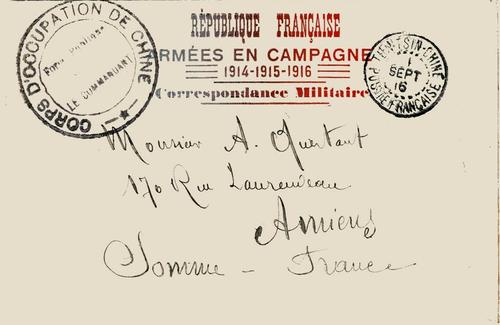 RÉPUBLIQUE FRANÇAISE
ARMÉES EN CAMPAGNE
1914-1915-1916
Correspondance Militaire
CORPS D'OCCUPATION DE CHINE
LE COMMANDANT
TIEN-TSIN-CHINE
1
SEPT
16
POSTE FRANÇAISE
Monsieur A. Quertant
170 Rue Laurendeau
Amiens
Somme - France